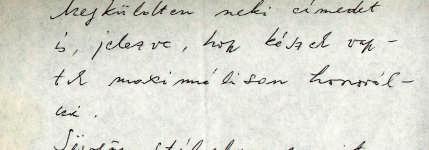 Megküldtem neki címedet
is, jelezve, hogy készek vagy-
tok maximálisan honorál-
ni.